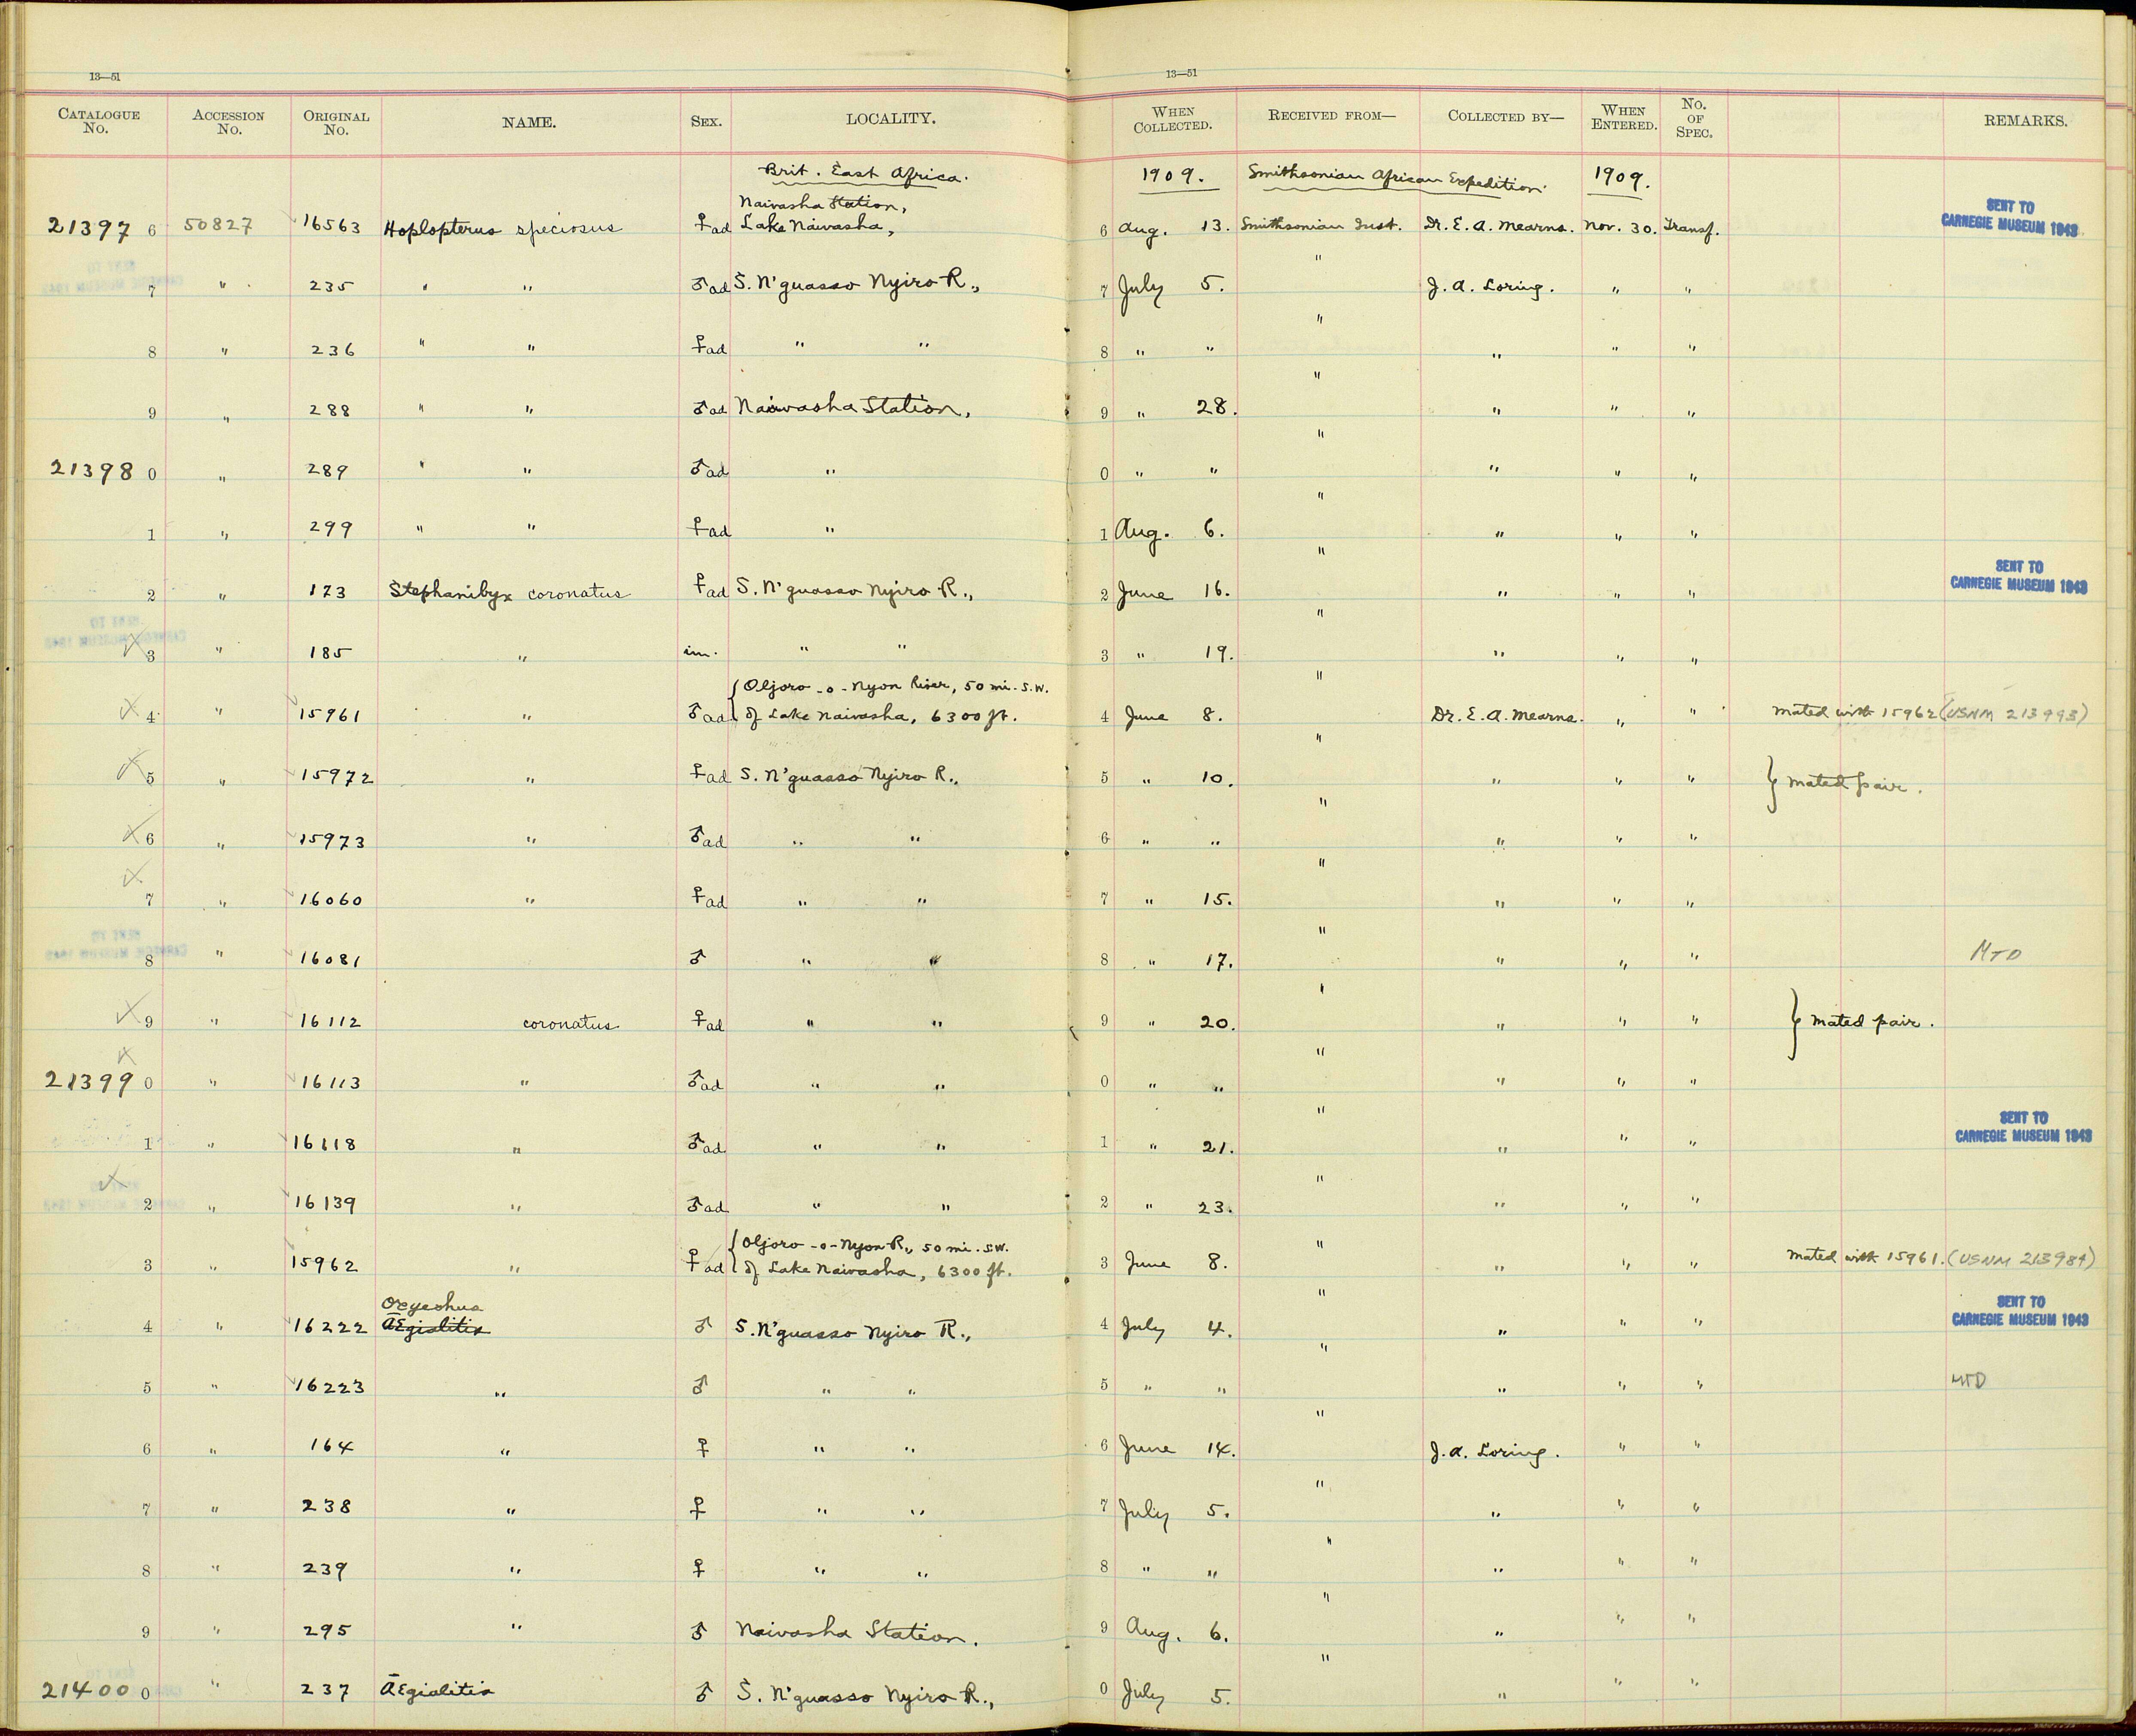 13—51
13—51
CATALOGUE No. ACCESSION No. ORIGINAL No. NAME. SEX. LOCALITY. WHEN COLLECTED. RECEIVED FROM— COLLECTED BY— WHEN ENTERED. No. OF SPEC. REMARKS.
Brit. East Africa. 1909. Smithsonian African Expedition. 1909.
Naivasha Station,
21397 6 50827 16563 Hoplopterus speciosus ♀ad Lake Naivasha, 6 Aug. 13. Smithsonian Inst. Dr. E. A. Mearns. Nov. 30. Transf. SENT TO CARNEGIE MUSEUM 1943
7 " 235 " " ♂ad S. N'guasso Nyiro R., 7 July 5. " J. A. Loring. " "
8 " 236 " " ♀ad " " 8 " " " " " "
9 " 288 " " ♂ad Naivasha Station, 9 " 28. " " " "
21398 0 " 289 " " ♂ad " 0 " " " " " "
1 " 299 " " ♀ad " 1 Aug. 6. " " " "
2 " 173 Stephanibyx coronatus ♀ad S. N'guasso Nyiro R., 2 June 16. " " " " SENT TO CARNEGIE MUSEUM 1943
3 " 185 " im. " " 3 " 19. " " " "
{ Oljoro-o-Nyon River, 50 mi. S.W.
4 " 15961 " ♂ad of Lake Naivasha, 6300 ft. 4 June 8. " Dr. E. A. Mearns. " " Mated with 15962 (USNM 213993)
5 " 15972 " ♀ad S. N'guasso Nyiro R., 5 " 10. " " " " } Mated pair.
6 " 15973 " ♂ad " " 6 " " " " " "
7 " 16060 " ♀ad " " 7 " 15. " " " "
8 " 16081 ♂ " " 8 " 17. " " " " MTD
9 " 16112 coronatus ♀ad " " 9 " 20. " " " " } Mated pair.
21399 0 " 16113 " ♂ad " " 0 " " " " " "
1 " 16118 " ♂ad " " 1 " 21. " " " " SENT TO CARNEGIE MUSEUM 1943
2 " 16139 " ♂ad " " 2 " 23. " " " "
{ Oljoro-o-Nyon R., 50 mi. S.W.
3 " 15962 " ♀ad of Lake Naivasha, 6300 ft. 3 June 8. " " " " Mated with 15961. (USNM 213984)
Oxyechus
4 " 16222 Ægialitis ♂ S. N'guasso Nyiro R., 4 July 4. " " " " SENT TO CARNEGIE MUSEUM 1943
5 " 16223 " ♂ " " 5 " " " " " " MTD
6 " 164 " ♀ " " 6 June 14. " J. A. Loring. " "
7 " 238 " ♀ " " 7 July 5. " " " "
8 " 239 " ♀ " " 8 " " " " " "
9 " 295 " ♂ Naivasha Station. 9 Aug. 6. " " " "
21400 0 " 237 Ægialitis ♂ S. N'guasso Nyiro R., 0 July 5. " " " "